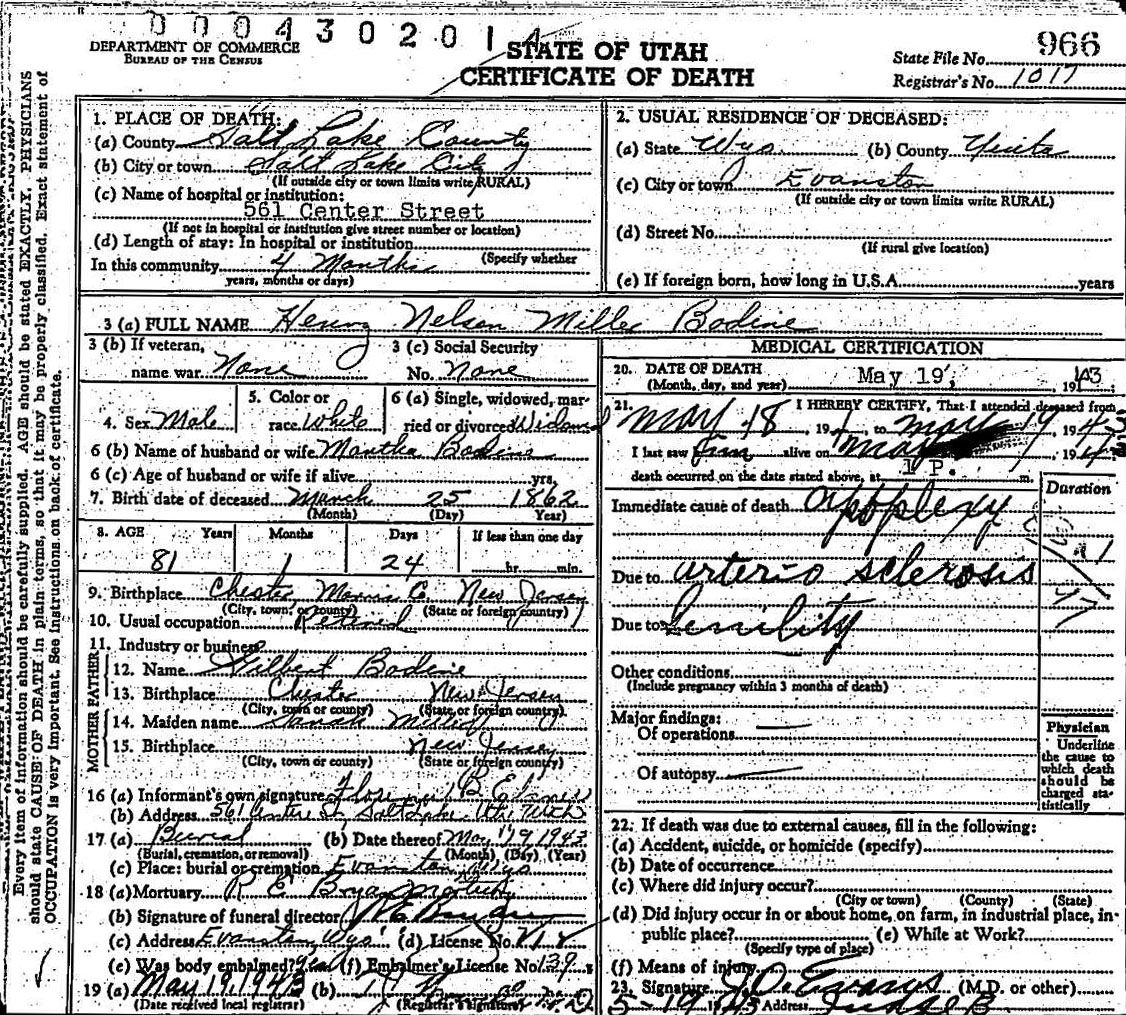 0004302014
DEPARTMENT OF COMMERCE
BUREAU OF THE CENSUS
STATE OF UTAH
CERTIFICATE OF DEATH
State File No. 966
Registrar's No. 1017
Every item of information should be carefully supplied. AGE should be stated EXACTLY. PHYSICIANS
should state CAUSE OF DEATH in plain terms, so that it may be properly classified. Exact statement of
OCCUPATION is very important. See instructions on back of certificate.
1. PLACE OF DEATH:
(a) County Salt Lake County
(b) City or town Salt Lake City
(If outside city or town limits write RURAL)
(c) Name of hospital or institution:
561 Center Street
(If not in hospital or institution give street number or location)
(d) Length of stay: In hospital or institution
(Specify whether
In this community 4 Months
years, months or days)
2. USUAL RESIDENCE OF DECEASED:
(a) State Wyo (b) County Uinta
(c) City or town Evanston
(If outside city or town limits write RURAL)
(d) Street No.
(If rural give location)
(e) If foreign born, how long in U.S.A. years
3 (a) FULL NAME Henry Nelson Miller Bodine
3 (b) If veteran,
name war None
3 (c) Social Security
No. None
4. Sex Male
5. Color or
race White
6 (a) Single, widowed, mar-
ried or divorced Widowed
6 (b) Name of husband or wife Martha Bodine
6 (c) Age of husband or wife if alive yrs.
7. Birth date of deceased March 25 1862
(Month) (Day) Year)
8. AGE Years Months Days If less than one day
81 1 24 hr. min.
9. Birthplace Chester Morris C. New Jersey
(City, town, or county) (State or foreign country)
10. Usual occupation Retired
11. Industry or business
FATHER
12. Name Gilbert Bodine
13. Birthplace Chester New Jersey
(City, town or county) (State or foreign country)
MOTHER
14. Maiden name Sarah
15. Birthplace New Jersey
(City, town or county) (State or foreign country)
16 (a) Informant's own signature B
(b) Address 561 Center St. Salt Lake Utah
17 (a) Burial (b) Date thereof May 19 1943
(Burial, cremation, or removal) (Month) (Day) (Year)
(c) Place: burial or cremation Evanston Wyo
18 (a) Mortuary R E Bryan
(b) Signature of funeral director
(c) Address Evanston Wyo (d) License No.
(e) Was body embalmed? yes (f) Embalmer's License No. 139
19 (a) May 19, 1943 (b)
(Date received local registrar) (Registrar's signature)
MEDICAL CERTIFICATION
20. DATE OF DEATH
(Month, day, and year) May 19, 1943
21. I HEREBY CERTIFY, That I attended deceased from
May 18, 194 to May 19 1943
I last saw him alive on May 194
death occurred on the date stated above, at 1 P. m.
Duration
Immediate cause of death apoplexy
Due to arterio sclerosis
Due to Senility
Other conditions
(Include pregnancy within 3 months of death)
Major findings:
Of operations
Of autopsy
Physician
Underline
the cause to
which death
should be
charged sta-
tistically
22. If death was due to external causes, fill in the following:
(a) Accident, suicide, or homicide (specify)
(b) Date of occurrence
(c) Where did injury occur?
(City or town) (County) (State)
(d) Did injury occur in or about home, on farm, in industrial place, in-
public place? (e) While at Work?
(Specify type of place)
(f) Means of injury
23. Signature (M.D. or other)
5-19-1943 Address Judge B